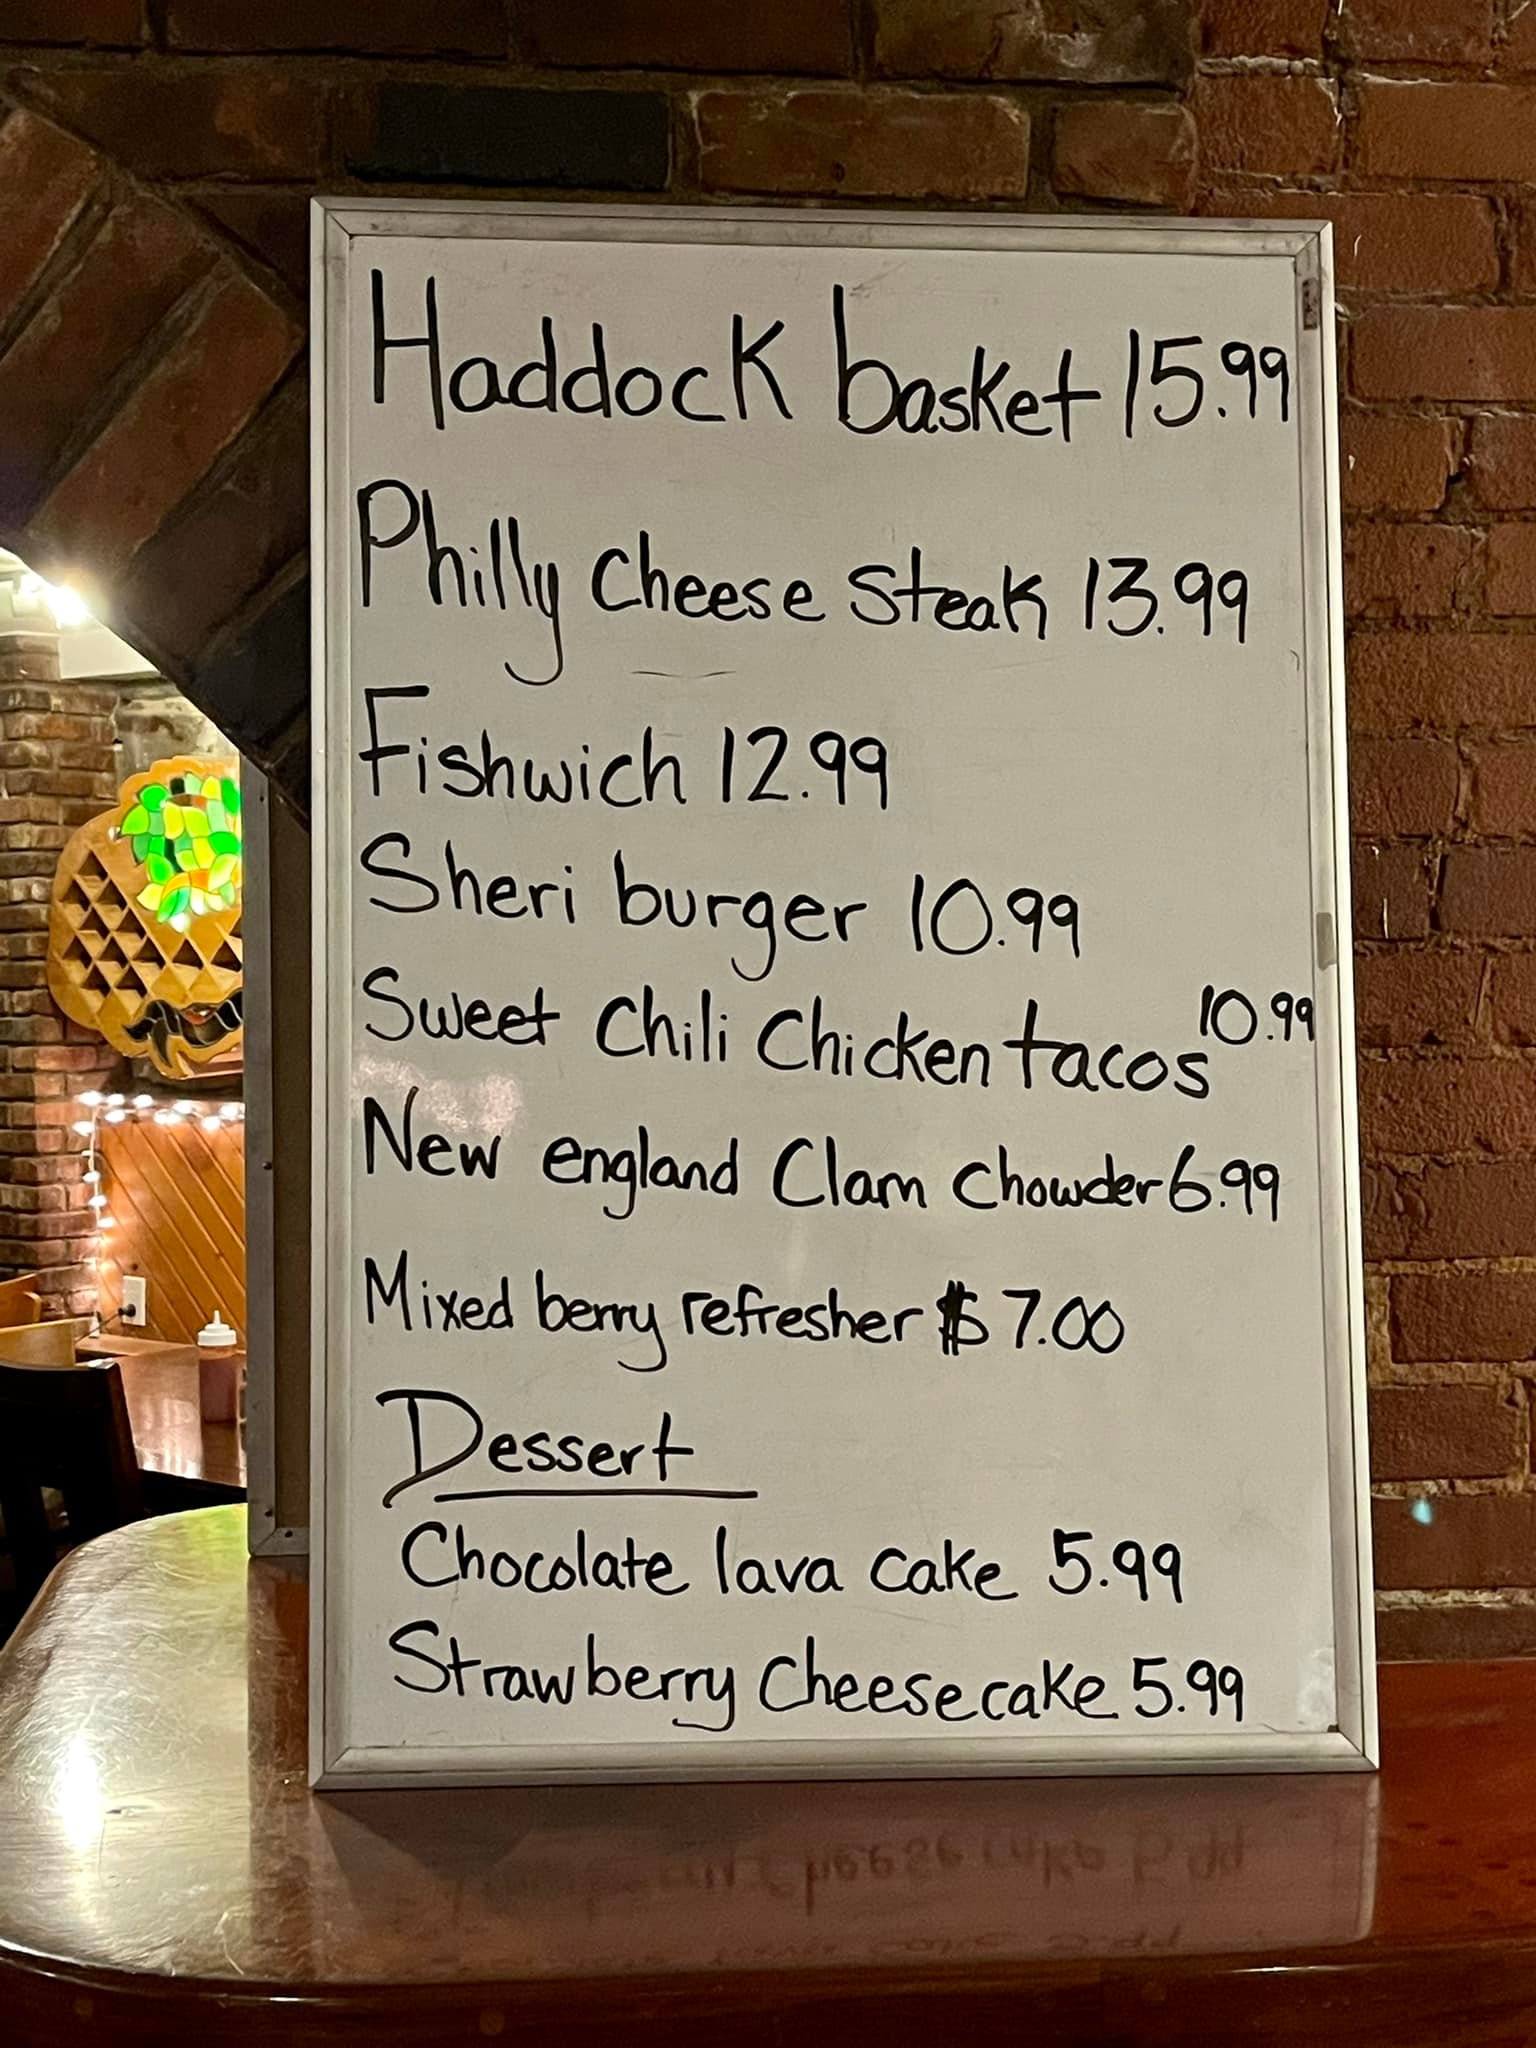 Haddock basket 15.99
Philly Cheese Steak 13.99
Fishwich 12.99
Sheri burger 10.99
Sweet Chili Chicken tacos 10.99
New england Clam chowder 6.99
Mixed berry refresher $7.00
Dessert
Chocolate lava cake 5.99
Strawberry Cheesecake 5.99